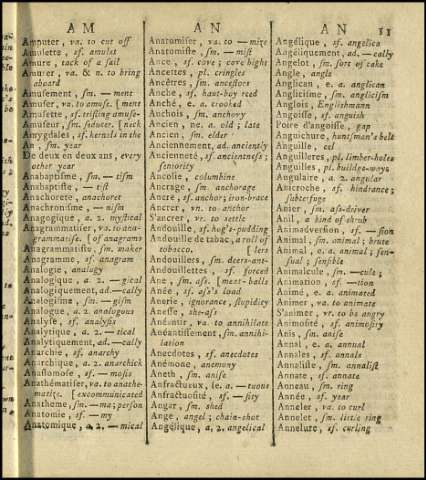 AM
AN
AN
11
Amputer, va. to cut off
Amulette, sf. amulet
Amure, tack of a sail
Amurer, va. & n. to bring
aboard
Amusement, sm. — ment
Amuser, va. to amuse. [ment
Amusette, sf. trifling amuse-
Amuseur, sm. seducer. [neck
Amygdales, sf. kernels in the
An, sm. year
De deux en deux ans, every
other year
Anabaptisme, sm. — tism
Anabaptiste, — tist
Anachorete, anachoret
Anachronisme, — nism
Anagogique, a. 2. mystical
Anagrammatiser, va. to ana-
grammatise. [of anagrams
Anagrammatiste, sm. maker
Anagramme, sf. anagram
Analogie, analogy
Analogique, a. 2. — gical
Analogiquement, ad. — cally
Analogisme, sm. — gism
Analogue, a. 2. analogous
Analyse, sf. analysis
Analytique, a. 2. — tical
Analytiquement, ad. — cally
Anarchie, sf. anarchy
Anarchique, a. 2. anarchick
Anastomose, sf. — mosis
Anathématiser, va. to anathe-
matize. [excommunicated
Anatheme, sm. — ma; person
Anatomie, sf. — my
Anatomique, a. 2. — mical
Anatomiser, va. to — mize
Anatomiste, sm. — mist
Ance, sf. cove; cove bight
Ancettes, pl. cringles
Ancêtres, sm. ancestors
Anche, sf. haut-boy reed
Anché, e. a. crooked
Anchois, sm. anchovy
Ancien, ne. a. old; late
Ancien, sm. elder
Anciennement, ad. anciently
Ancienneté, sf. ancientness;
seniority
Ancolie, columbine
Ancrage, sm. anchorage
Ancre, sf. anchor; iron-brace
Ancrer, vn. to anchor
S'ancrer, vr. to settle
Andouille, sf. hog's-pudding
Andouille de tabac, a roll of
tobacco. [lers
Andouillers, sm. deers-ant-
Andouillettes, sf. forced
Ane, sm. ass. [meat-balls
Anée, sf. ass's load
Anerie, ignorance, stupidity
Anesse, she-ass
Anéantir, va. to annihilate
Anéantissement, sm. annihi-
lation
Anecdotes, sf. anecdotes
Anémone, anemony
Aneth, sm. anise
Anfractueux, se. a. — tuous
Anfractuosité, sf. — sity
Angar, sm. shed
Ange, angel; chain-shot
Angélique, a. 2. angelical
Angélique, sf. angelica
Angéliquement, ad. — cally
Angelot, sm. sort of cake
Angle, angle
Anglican, e. a. anglican
Anglicisme, sm. anglicism
Anglois, Englishmann
Angoisse, sf. anguish
Poire d'angoisse, gap
Anguichure, huntsman's belt
Anguille, eel
Anguilleres, pl. limber-holes
Anguilles, pl. buildge-ways
Angulaire, a. 2. angular
Anicroche, sf. hindrance;
subterfuge
Anier, sm. ass-driver
Anil, a kind of shrub
Animadversion, sf. — sion
Animal, sm. animal; brute
Animal, e. a. animal; sen-
sual; sensible
Animalcule, sm. — cule;
Animation, sf. — tion
Animé, e. a. animated
Animer, va. to animate
S'animer, vr. to be angry
Animosité, sf. animosity
Anis, sm. anise
Annal, e. a. annual
Annales, sf. annals
Annaliste, sm. annalist
Annate, sf. annate
Anneau, sm. ring
Année, sf. year
Anneler, va. to curl
Annelet, sm. little ring
Annelure, sf. curling